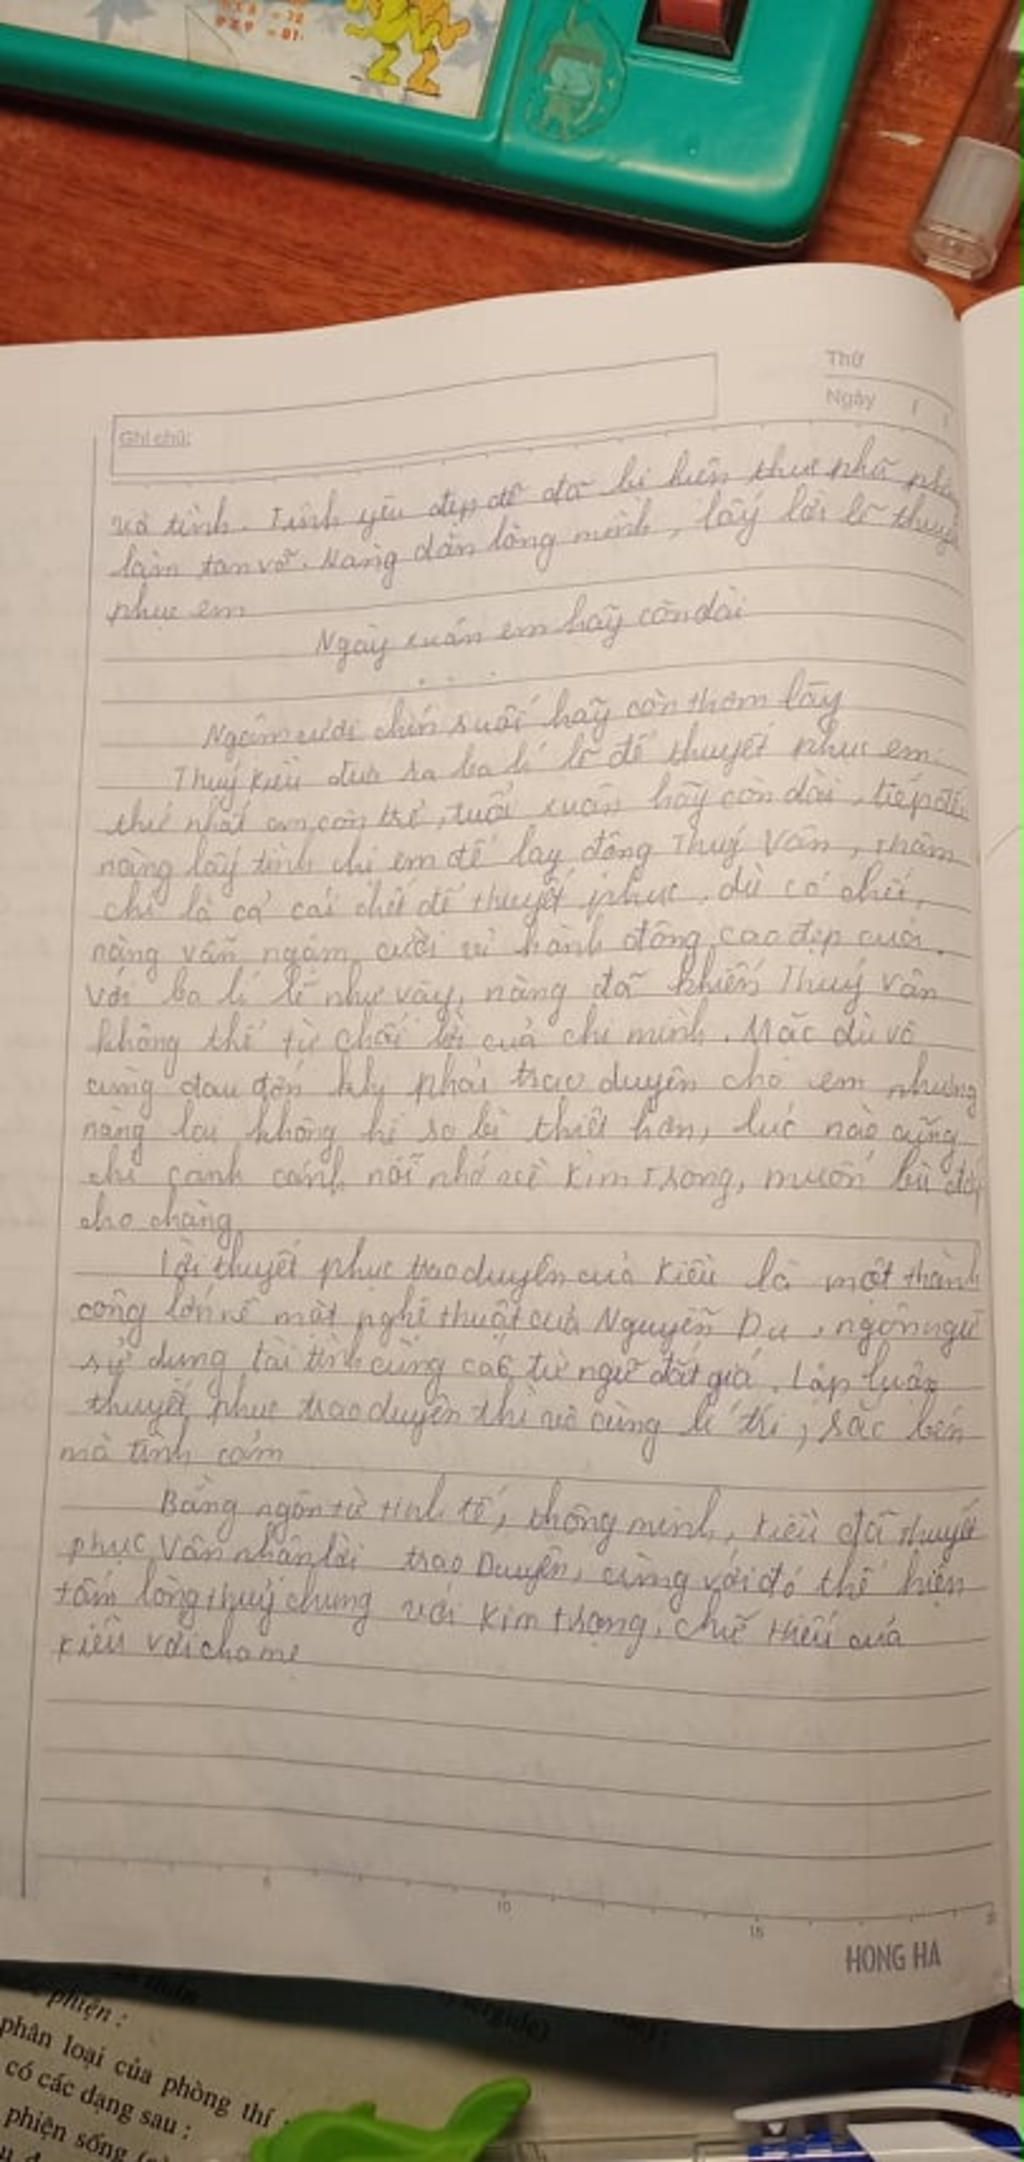 9 x 9 = 81
Thứ
Ngày / /
Ghi chú:
vô tình. Tình yêu đẹp đẽ đã bị hiện thực phũ phàng
làm tan vỡ. Nàng dằn lòng mình, lấy lời lẽ thuyết
phục em
Ngày xuân em hãy còn dài
. . .
Ngậm cười chín suối hãy còn thơm lây
Thuý Kiều đưa ra ba lí lẽ để thuyết phục em:
thứ nhất em còn trẻ, tuổi xuân hãy còn dài, tiếp đến
nàng lấy tình chị em để lay động Thuý Vân, thậm
chí là cả cái chết để thuyết phục, dù có chết,
nàng vẫn ngậm cười vì hành động cao đẹp cuối.
Với ba lí lẽ như vậy, nàng đã khiến Thuý Vân
không thể từ chối lời của chị mình. Mặc dù vô
cùng đau đớn khi phải trao duyên cho em nhưng
nàng lại không hề so bì thiệt hơn, lúc nào cũng
chỉ canh cánh nỗi nhớ về Kim Trọng, muốn bù đắp
cho chàng
Lời thuyết phục trao duyên của Kiều là một thành
công lớn về mặt nghệ thuật của Nguyễn Du, ngôn ngữ
sử dụng tài tình cùng các từ ngữ đắt giá. Lập luận
thuyết phục trao duyên thì vô cùng lí trí, sắc bén
mà tình cảm
Bằng ngôn từ tinh tế, thông minh, Kiều đã thuyết
phục Vân nhận lời trao Duyên, cùng với đó thể hiện
tấm lòng thuỷ chung với Kim Trọng, chữ Hiếu của
Kiều với cha mẹ
5 10 15
HONG HA
phiện :
phân loại của phòng thí
có các dạng sau :
phiện sống